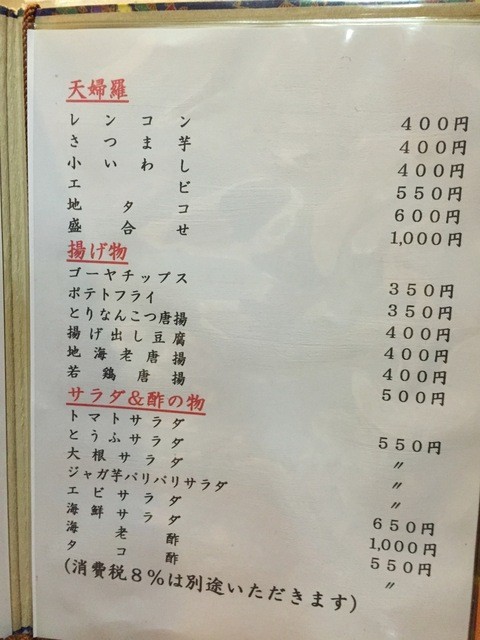 天婦羅
レンコン 400円
さつま芋 400円
小いわし 400円
エビ 550円
地タコ 600円
盛合せ 1,000円
揚げ物
ゴーヤチップス 350円
ポテトフライ 350円
とりなんこつ唐揚 400円
揚げ出し豆腐 400円
地海老唐揚 400円
若鶏唐揚 500円
サラダ&酢の物
トマトサラダ 550円
とうふサラダ 〃
大根サラダ 〃
ジャガ芋パリパリサラダ 〃
エビサラダ 650円
海鮮サラダ 1,000円
海老酢 550円
タコ酢 〃
(消費税8%は別途いただきます)